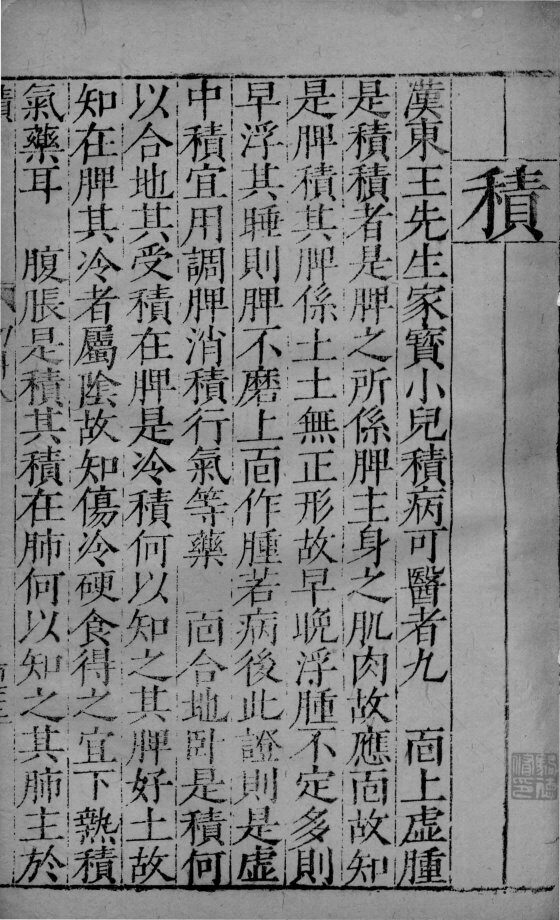 積
漢東王先生家寳小兒積病可醫者九　靣上虚腫
是積積者是脾之所係脾主身之肌肉故應靣故知
是脾積其脾係土土無正形故早晚浮腫不定多則
早浮其睡則脾不磨上靣作腫若病後此證則是虚
中積宜用調脾消積行氣等藥　靣合地卧是積何
以合地其受積在脾是冷積何以知之其脾好土故
知在脾其冷者屬陰故知傷冷硬食得之宜下熱積
氣藥耳　腹脹是積其積在肺何以知之其肺主於
積